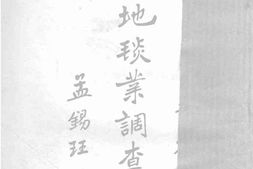 地毯業調查
孟錫珏